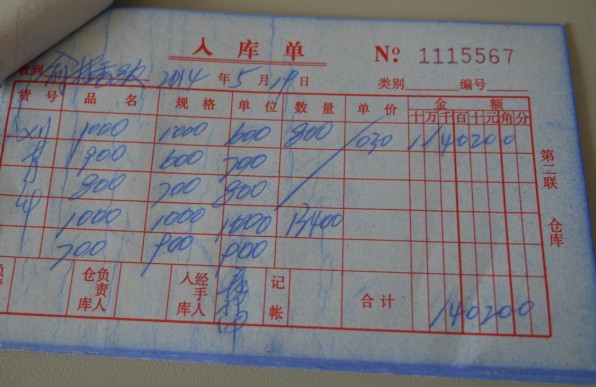 入库单 № 1115567
收到 2014年5月19日 类别 编号
货号 品名 规格 单位 数量 单价 金额
十万千百十元角分
1000 1000 600 800 030 1140200
900 600 700
800 700 800
1000 1000 1000 13400
700 900 900
第二联 仓库
仓库负责人 经手人 记帐 合计 140200